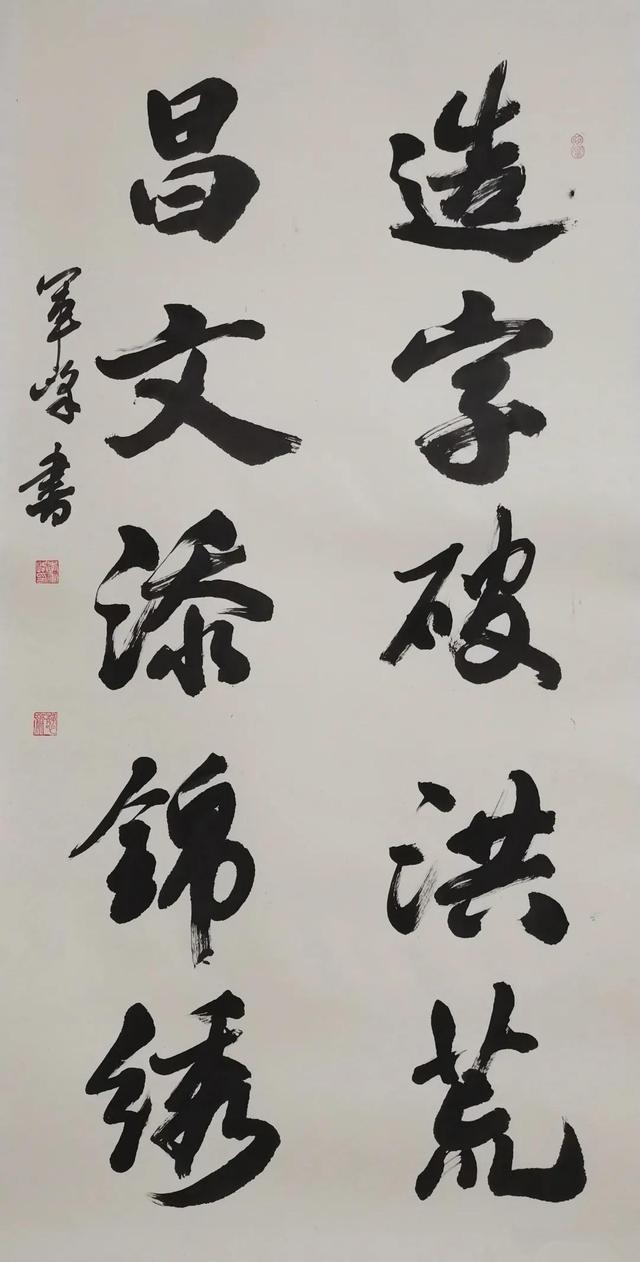 造字破洪荒
昌文添錦绣
军峰书